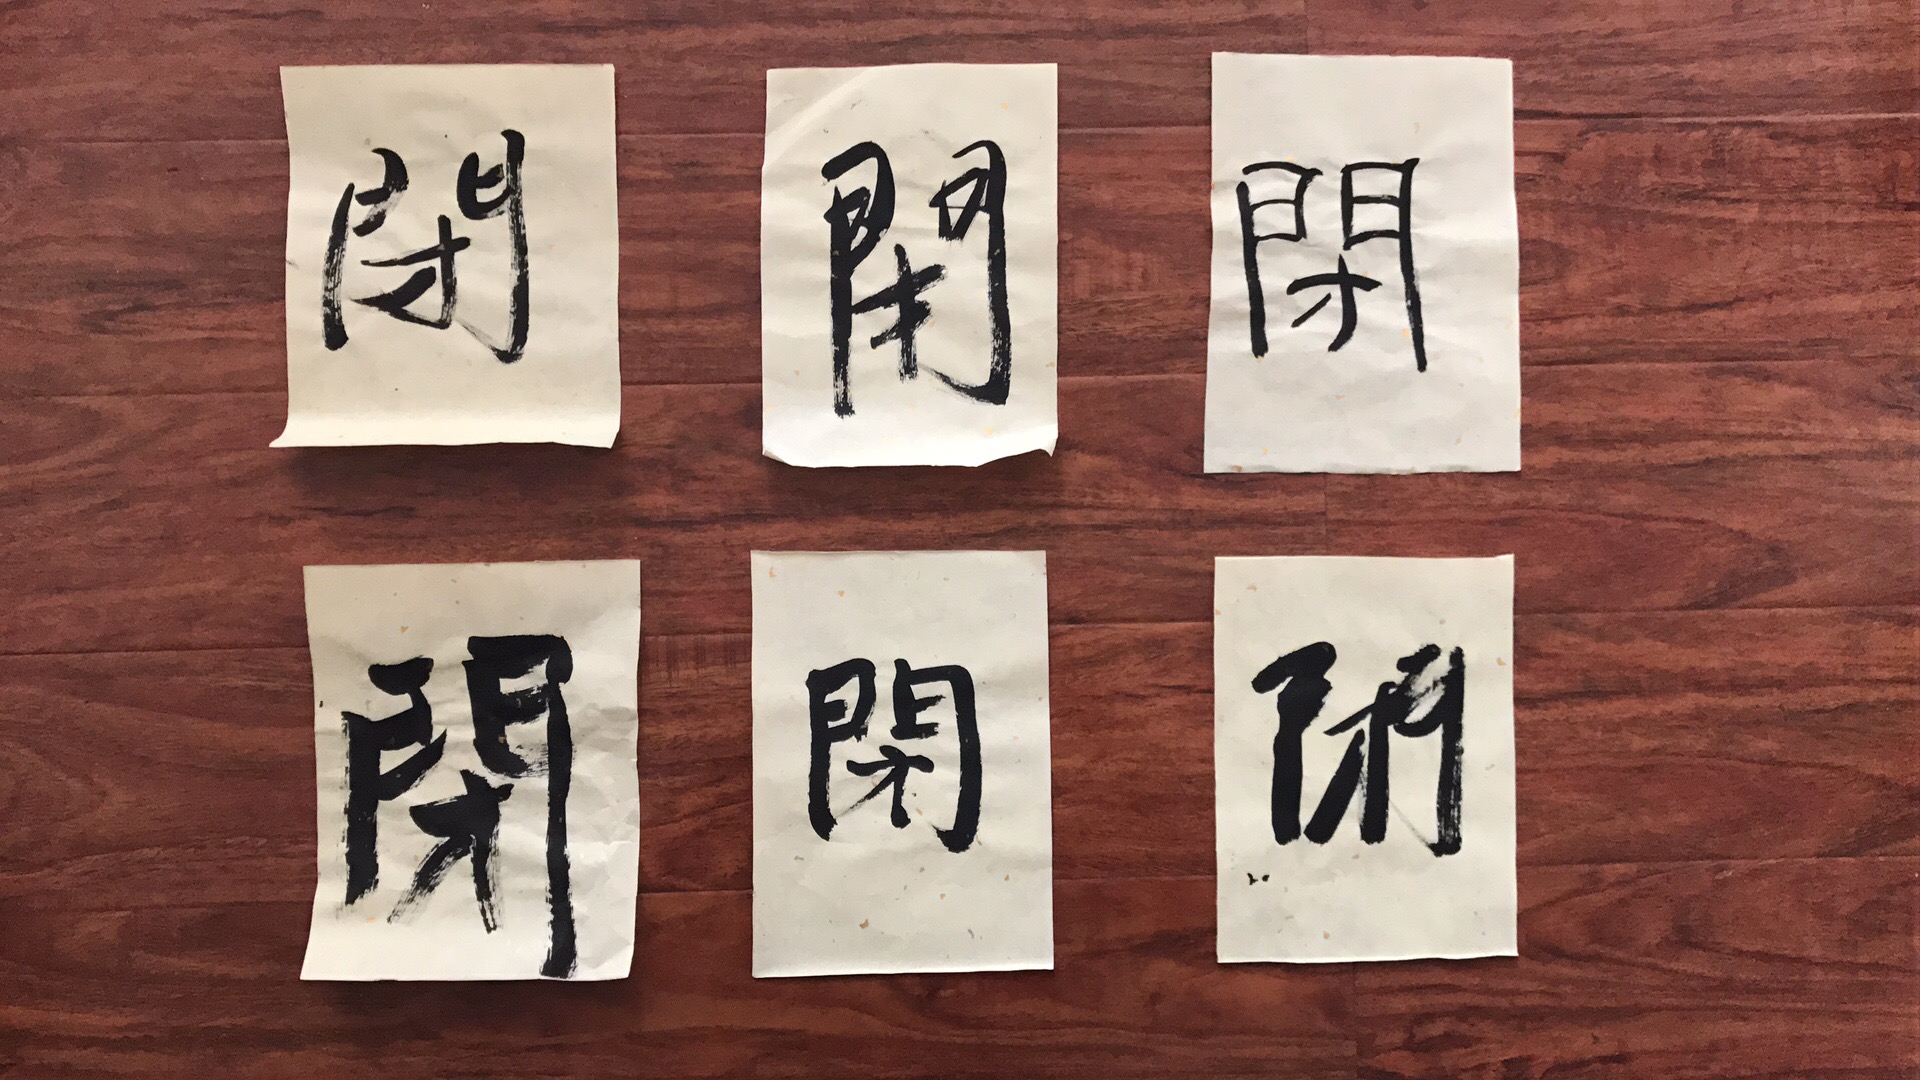 閉 閉 閉
閉 閉 閉